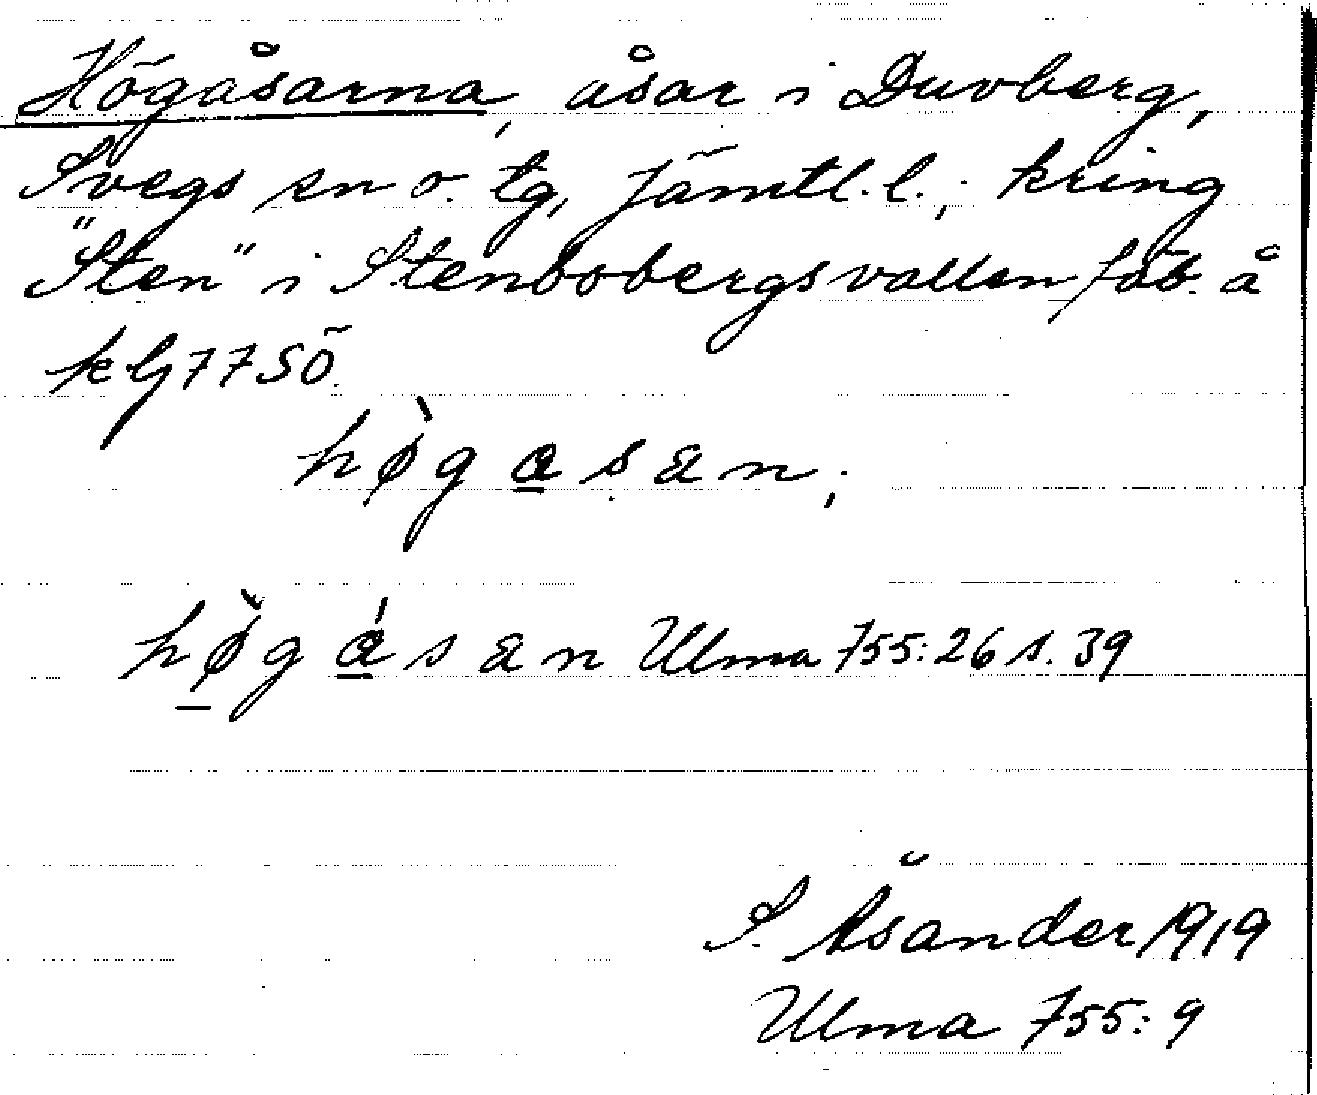 Högåsarna, åsar i Duvberg,
Svegs sn o. tg, Jämtl. l.; kring
"Sten" i Stenbobergsvallen fäb. å
kbl 77 SÖ.
hø̀ga̲sạn;
hø̲̀gá̲san Ulma 755:26 s. 39
S. Åsander 1919
Ulma 755:9